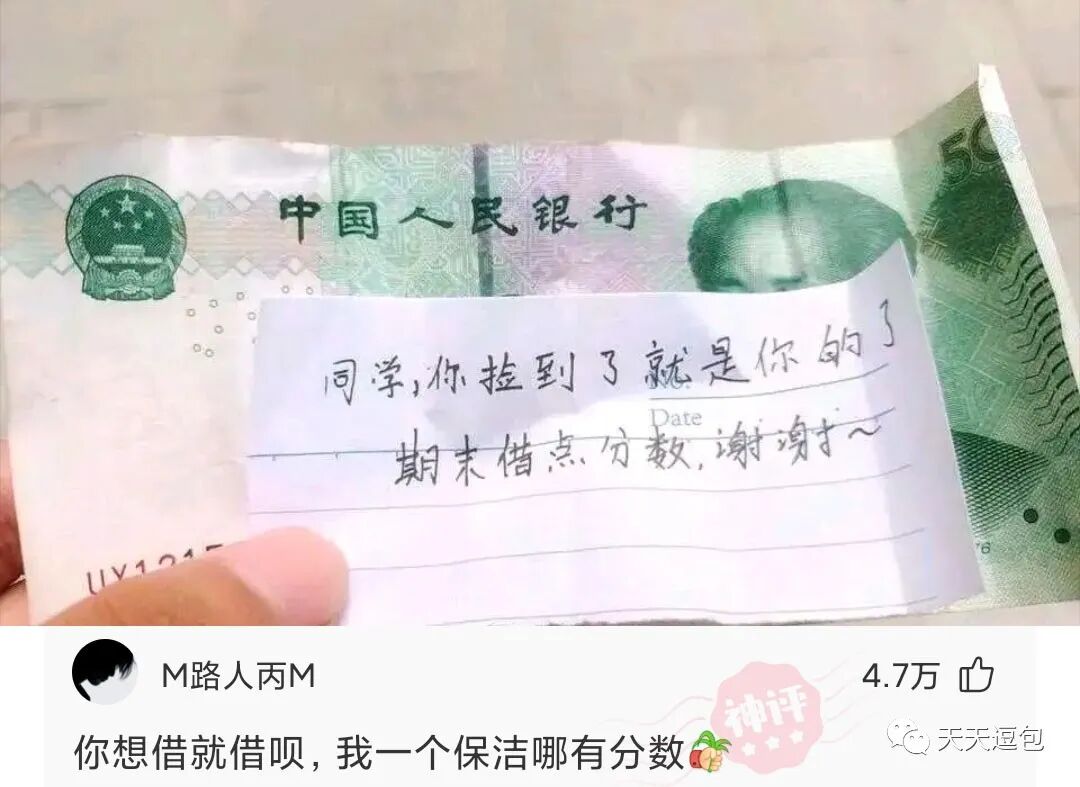 中国人民银行
50
同学,你捡到了就是你的了
Date
期末借点分数,谢谢~
UX1215
M路人丙M
4.7万
神评
你想借就借呗,我一个保洁哪有分数
天天逗包